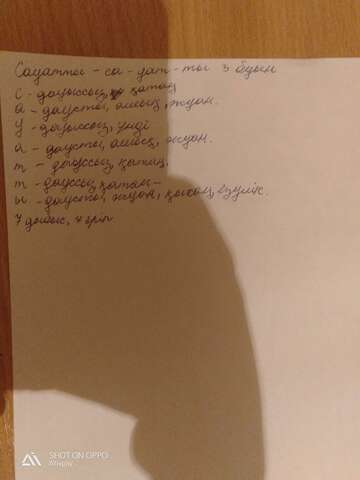 Сауатты - са - уат - ты 3 буын
С - дауыссыз, қатаң
а - дауысты, ашық, жуан.
У - дауыссыз, үнді
а - дауысты, ашық, жуан.
т - дауыссыз, қатаң.
т - дауссыз, қатаң -
ы - дауысты, жуан, қысаң, езулік.
7 дыбыс, 7 әріп
SHOT ON OPPO
Атырау